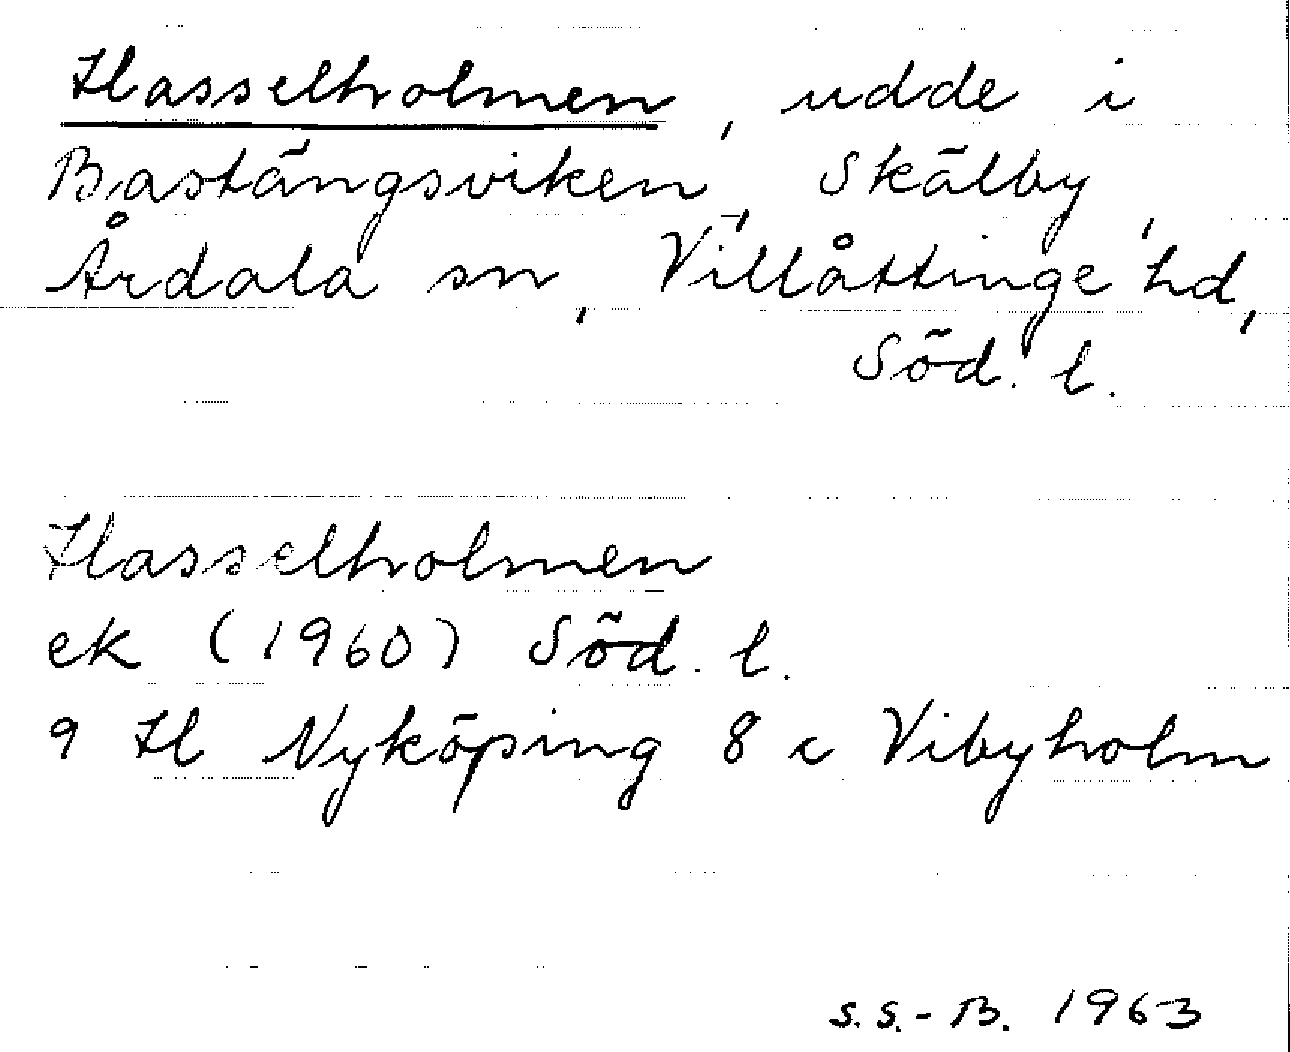 Hasselholmen, udde i
Bastängsviken, Skälby,
Årdala sn, Villåttinge hd,
Söd. l.
Hasselholmen
ek (1960) Söd. l.
9 H Nyköping 8 c Vibyholm
S.S.-B. 1963